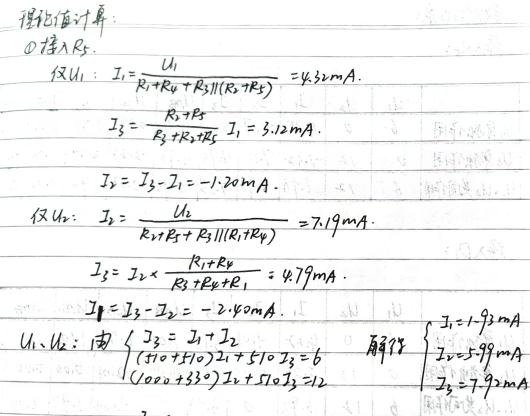 理论值计算:
①接入R5.
仅U1: I1 = U1 / (R1+R4+R3∥(R2+R5)) = 4.32mA.
I3 = (R2+R5) / (R3+R2+R5) I1 = 3.12mA.
I2 = I3-I1 = -1.20mA.
仅U2: I2 = U2 / (R2+R5+R3∥(R1+R4)) = 7.19mA.
I3 = I2 × (R1+R4) / (R3+R4+R1) = 4.79mA.
I1 = I3-I2 = -2.40mA.
U1、U2: 由 { I3 = I1+I2
(510+510)I1+510I3=6
(1000+330)I2+510I3=12
解得 { I1=1.93mA
I2=5.99mA
I3=7.92mA